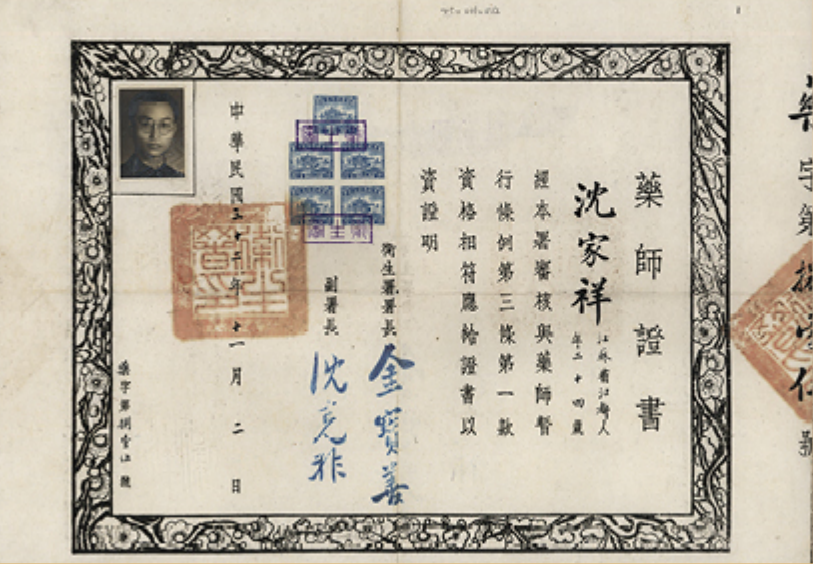 藥師證書
沈家祥
江蘇省江都人
年二十四歲
經本署審核與藥師暫
行條例第三條第一款
資格相符應給證書以
資證明
衛生署署長 金寶善
副署長 沈克非
衛生署
中華民國三十二年十一月二日
衛生署印
藥字第捌壹號